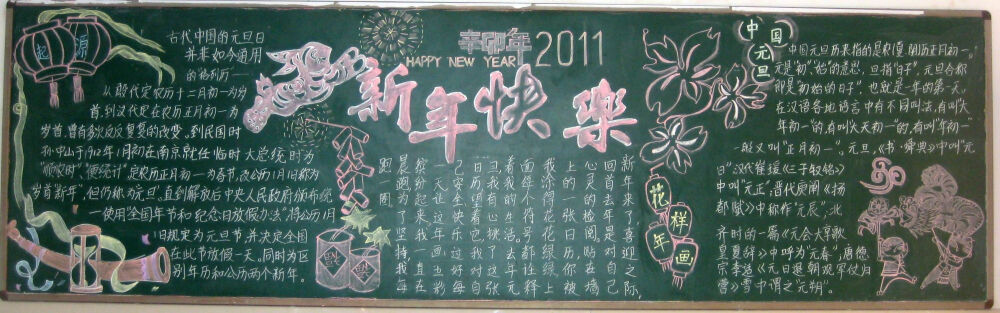 起
源
古代中国的元旦日
并非如今通用
的格列历一
从殷代定农历十二月初一为岁
首,到汉代定在农历正月初一为
岁首,曾有多次反反复复的改变。到民国时
孙中山于1912年1月初在南京就任临时大总统时为
"顺农时""便统计"定农历正月初一为春节,改公历1月1日称为
岁首新年",但仍称为元旦。直到解放后中央人民政府颁布统
一使用《全国年节和纪念日放假办法》将公历1月
1日规定为元旦节,并决定全国
在此节放假一天。同时为区
别年历和公历两个新年。
辛卯年 2011
HAPPY NEW YEAR
新年快樂
新年来了,喜迎之际,
回首去年是对自己
心灵的检阅。贴在墙
上的一张日历,你被
我涂得花花绿绿上
面年不符号都诠释
着我的生活。去年元
日历有心桃我对自张
己安全快乐过好每
缤纷让这年五彩
晨跑为了坚持,我每
跑一圈
花样年画
中国元旦
中国元旦历来指的是农(夏、阴)历正月初一。
元是"初""始"的意思,旦指"日子",元旦合称
即是"初始的日子",也就是一年的第一天。
在汉语各地语言中有不同叫法,有叫"大
年初一"的,有叫"大天初一"的,有叫"年初一"
一般又叫"正月初一"。元旦,《书·舜典》中叫"元
日",汉代崔瑗《三子钗铭》
中叫"元正",晋代庾阐《扬
都赋》中称作"元辰",北
齐时的一篇《元会大享歌
皇夏辞》中呼为"元春",唐德
宗李适《元日退朝观军仗归
营》中谓之"元朔"。